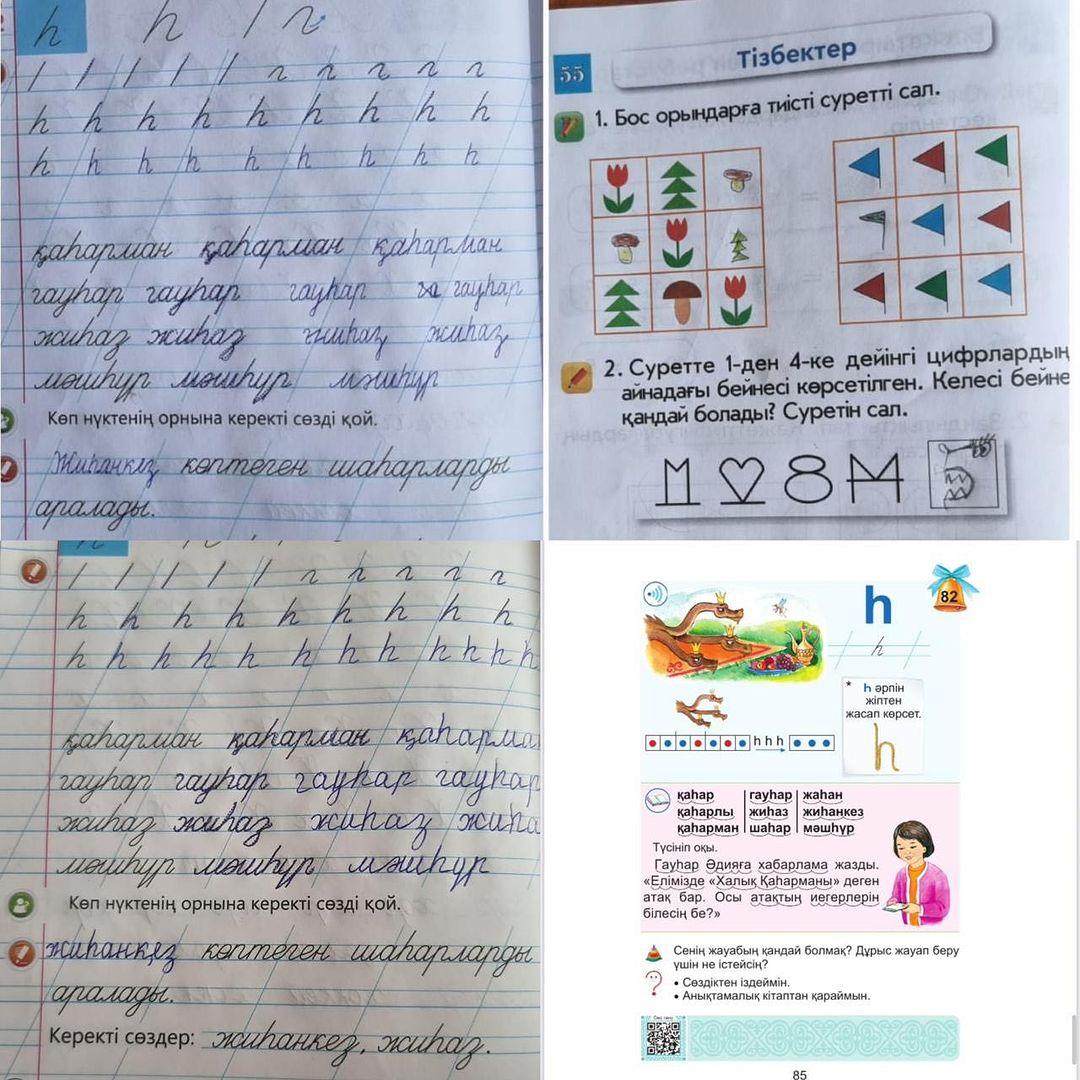 һ һ
һ һ һ һ һ һ һ һ һ
һ һ һ һ һ һ һ һ һ
қаһарман қаһарман қаһарман
гауһар гауһар гауһар га гауһар
жиһаз жиһаз жиһаз жиһаз
мәшһүр мәшһүр мәшһүр
Көп нүктенің орнына керекті сөзді қой.
Жиһанкез көптеген шаһарларды
аралады.
55
Тізбектер
1. Бос орындарға тиісті суретті сал.
2. Суретте 1-ден 4-ке дейінгі цифрлардың
айнадағы бейнесі көрсетілген. Келесі бейне
қандай болады? Суретін сал.
һ һ һ һ һ һ һ һ һ
һ һ һ һ һ һ һ һ һ һ һ һ
қаһарман қаһарман қаһарма
гауһар гауһар гауһар гауһар
жиһаз жиһаз жиһаз жиһа
мәшһүр мәшһүр мәшһүр
Көп нүктенің орнына керекті сөзді қой.
жиһанкез көптеген шаһарларды
аралады.
Керекті сөздер: жиһанкез, жиһаз.
82
һ
һ
* һ әрпін
жіптен
жасап көрсет.
һ һ һ
һ
қаһар гауһар жаһан
қаһарлы жиһаз жиһанкез
қаһарман шаһар мәшһүр
Түсініп оқы.
Гауһар Әдияға хабарлама жазды.
«Елімізде «Халық Қаһарманы» деген
атақ бар. Осы атақтың иегерлерін
білесің бе?»
Сенің жауабың қандай болмақ? Дұрыс жауап беру
үшін не істейсің?
• Сөздіктен іздеймін.
• Анықтамалық кітаптан қараймын.
85